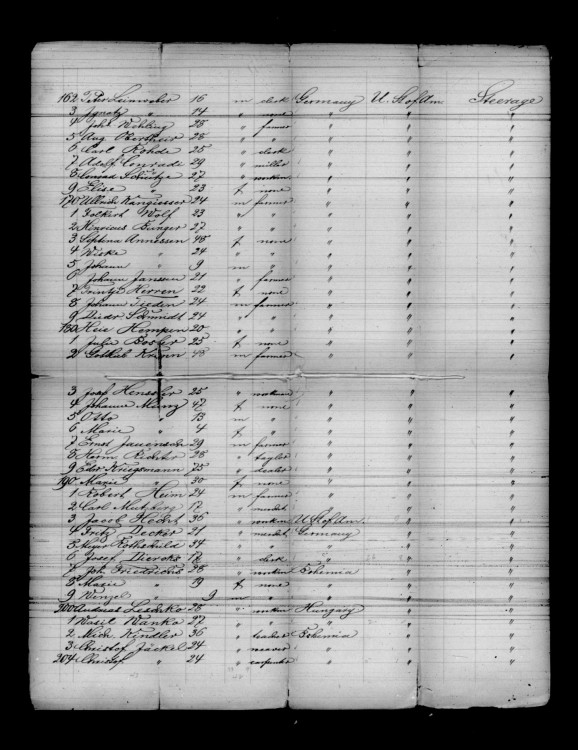 162 Peter Leinweber 16 m clerk Germany U. S. of Am Steerage
3 Ignatz " 14 " none " " "
4 John Wehling 28 " farmer " " "
5 Aug. 28 " " " " "
6 Carl Rohde 25 " clerk " " "
7 Adolf Conradi 29 " miller " " "
8 Conrad Schütze 27 " workm " " "
9 Elise " 23 f none " " "
170 Ullrich 24 m farmer " " "
1 Folkert Wolf 23 " " " " "
2 Hinricus Bunger 27 " " " " "
3 Annessen 48 f none " " "
4 Wiske " 24 " " " " "
5 Johann " 9 m " " "
6 Johann Janssen 21 " farmer " " "
7 Trintje Herren 22 f none " " "
8 Johann Tieden 24 m farmer " " "
9 Diedr Schmidt 24 " " " " "
180 Heie Hempen 20 " " " " "
1 Julie Boster 25 f none " " "
2 Gottlieb 48 m farmer " " "
3 Josef Hensler 25 " workm " " "
4 Johanna 47 f none " " "
5 Otto " 13 m " " " "
6 Marie " 4 f " " "
7 Ernst 29 m farmer " " "
8 Herm. Richter 28 " taylor " " "
9 Edw Kriegsmann 75 " " " "
190 Marie " 30 f none " " "
1 Robert Heim 24 m farmer " " "
2 Carl 17 " " " "
3 Jacob Hecht 36 " workm U. S. of Am. " "
4 Fritz Decker 21 " Germany " "
5 Meyer Rothschild 34 " " " " "
6 Josef Diercks 17 " clerk " " "
7 Joh. Friedrichs 28 " workm Bohemia " "
8 Marie " 19 f none " " "
9 Wenzel " 9 m " " " "
200 Andreas 28 " workm Hungary " "
1 Wasil Wanko 27 " " " " "
2 Mich Kindler 36 " Bohemia " "
3 Christof Jäckel 24 " weaver " " "
204 Christof " 24 " carpenter " " "